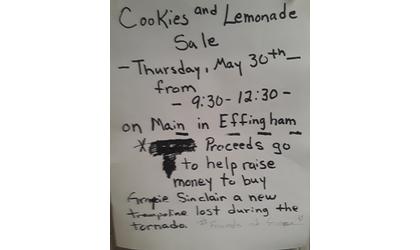 Cookies and Lemonade
Sale
- Thursday, May 30th -
from
- 9:30 - 12:30 -
on Main in Effingham
* Proceeds go
to help raise
money to buy
Sinclair a new
trampoline lost during the
tornado.